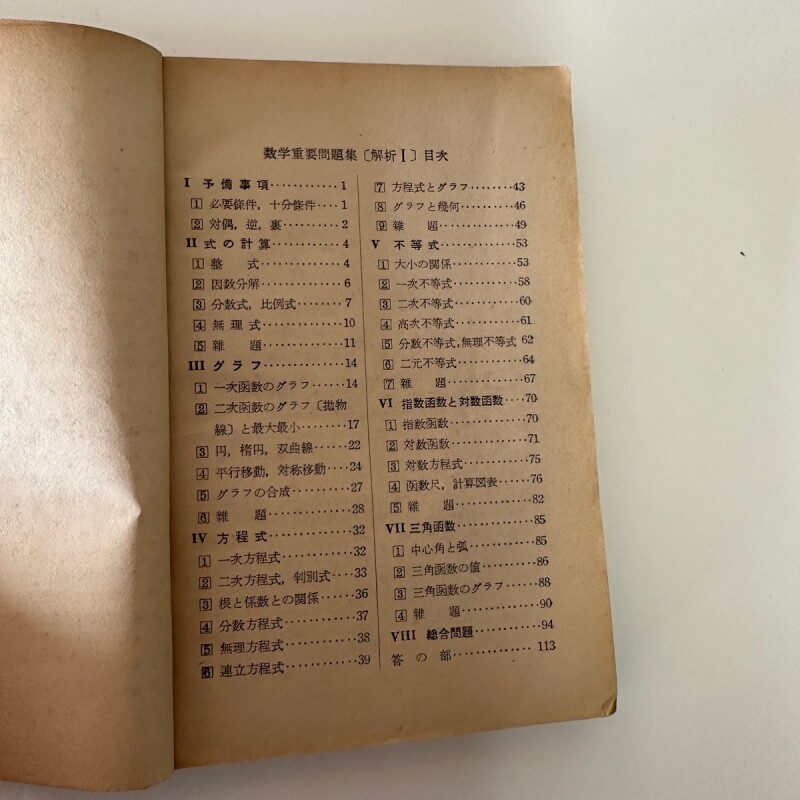 数学重要問題集〔解析Ⅰ〕目次
I 予備事項············1
1 必要條件，十分條件····1
2 対偶，逆，裏··········2
II 式の計算············4
1 整　式··············4
2 因数分解··············6
3 分数式，比例式········7
4 無理式··············10
5 雑　題··············11
III グラフ··············14
1 一次函数のグラフ······14
2 二次函数のグラフ〔抛物
線〕と最大最小········17
3 円，楕円，双曲線······22
4 平行移動，対称移動····24
5 グラフの合成··········27
6 雑　題··············28
IV 方程式··············32
1 一次方程式············32
2 二次方程式，判別式····33
3 根と係数との関係······36
4 分数方程式············37
5 無理方程式············38
6 連立方程式············39
7 方程式とグラフ········43
8 グラフと幾何··········46
9 雑　題··············49
V 不等式··············53
1 大小の関係············53
2 一次不等式············58
3 二次不等式············60
4 高次不等式············61
5 分数不等式，無理不等式 62
6 二元不等式············64
7 雑　題··············67
VI 指数函数と対数函数····70
1 指数函数··············70
2 対数函数··············71
3 対数方程式············75
4 函数尺，計算図表······76
5 雑　題··············82
VII 三角函数············85
1 中心角と弧············85
2 三角函数の値··········86
3 三角函数のグラフ······88
4 雑　題··············90
VIII 総合問題············94
答の部··············113